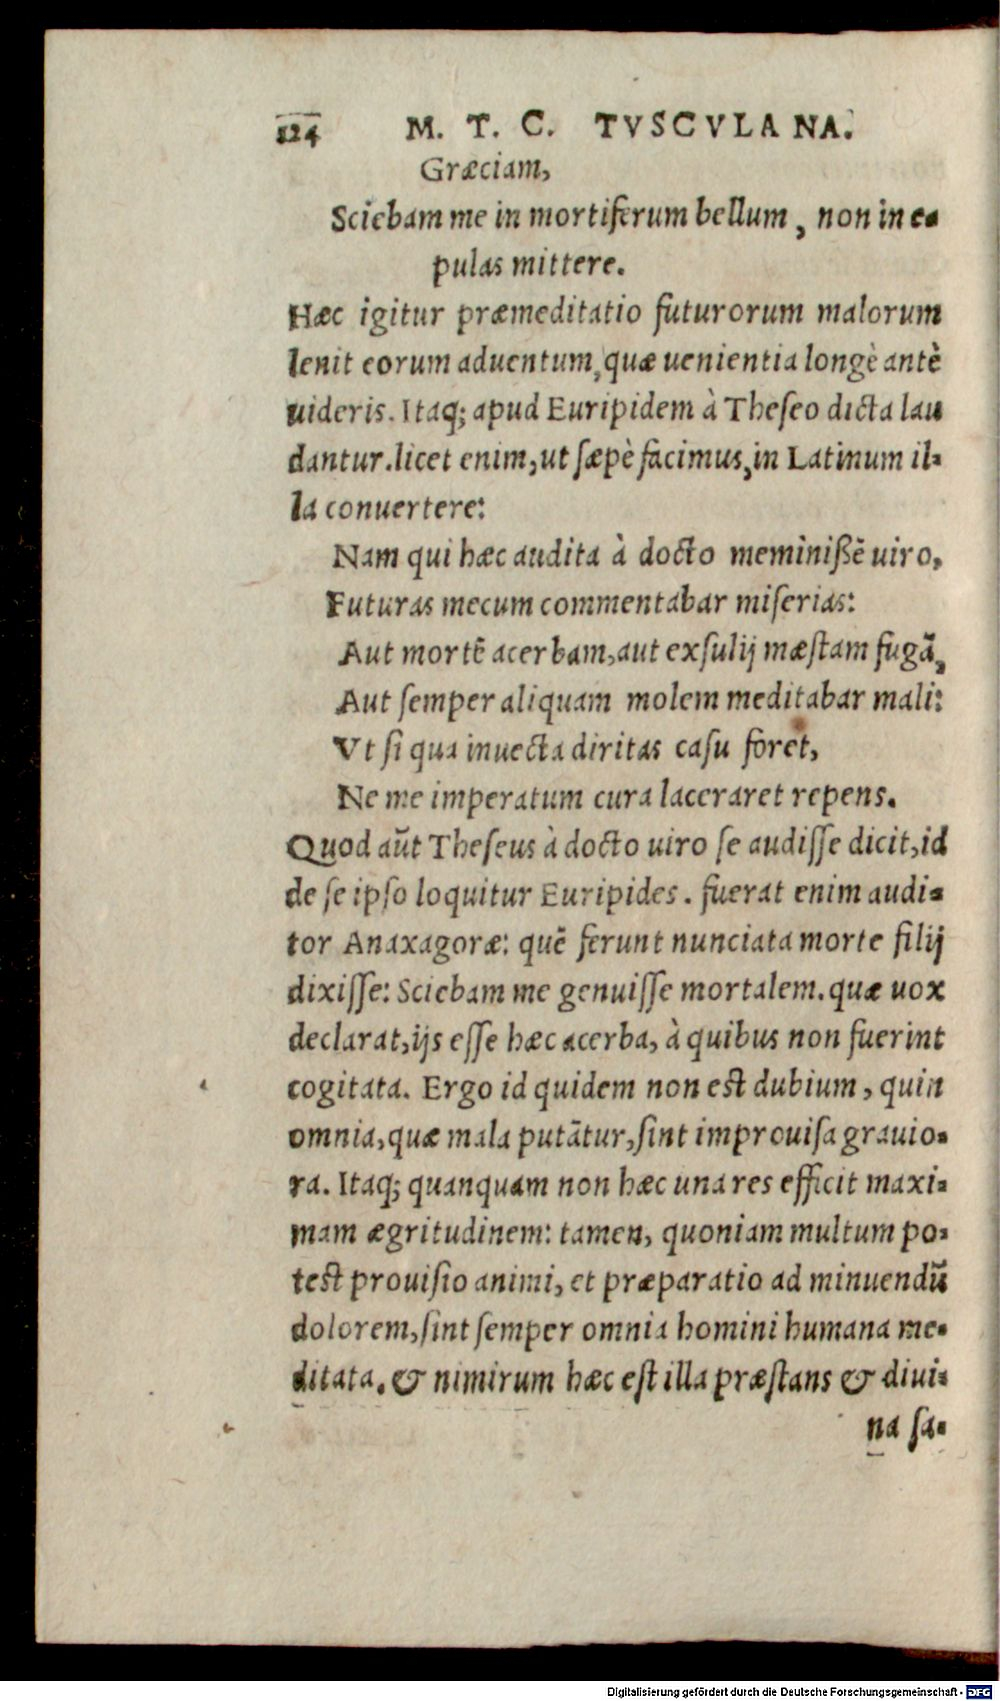 124 M. T. C. TVSCVLANA.
Græciam,
Sciebam me in mortiferum bellum, non in e-
pulas mittere.
Hæc igitur præmeditatio futurorum malorum
lenit eorum aduentum, quæ uenientia longè antè
uideris. Itaq; apud Euripidem à Theseo dicta lau
dantur. licet enim, ut sæpè facimus, in Latinum il-
la conuertere:
Nam qui hæc audita à docto meminißẽ uiro,
Futuras mecum commentabar miserias:
Aut mortẽ acerbam, aut exsulij mæstam fugã,
Aut semper aliquam molem meditabar mali:
Vt si qua inuecta diritas casu foret,
Ne me imperatum cura laceraret repens.
Quod aũt Theseus à docto uiro se audisse dicit, id
de se ipso loquitur Euripides. fuerat enim audi-
tor Anaxagoræ: quẽ ferunt nunciata morte filij
dixisse: Sciebam me genuisse mortalem. quæ uox
declarat, ijs esse hæc acerba, à quibus non fuerint
cogitata. Ergo id quidem non est dubium, quin
omnia, quæ mala putãtur, sint improuisa grauio-
ra. Itaq; quanquam non hæc una res efficit maxi-
mam ægritudinem: tamen, quoniam multum po-
test prouisio animi, et præparatio ad minuendũ
dolorem, sint semper omnia homini humana me-
ditata. & nimirum hæc est illa præstans & diui-
na sa-
Digitalisierung gefördert durch die Deutsche Forschungsgemeinschaft - DFG